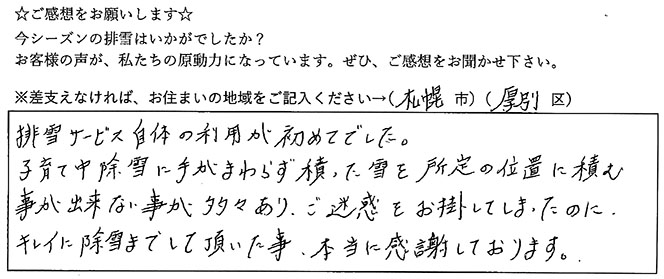 ☆ご感想をお願いします☆
今シーズンの排雪はいかがでしたか？
お客様の声が、私たちの原動力になっています。ぜひ、ご感想をお聞かせ下さい。
※差支えなければ、お住まいの地域をご記入ください→(札幌 市) (厚別 区)
排雪サービス自体の利用が初めてでした。
子育て中除雪に手がまわらず積った雪を所定の位置に積む
事が出来ない事が多々あり、ご迷惑をお掛してしまったのに、
キレイに除雪までして頂いた事、本当に感謝しております。